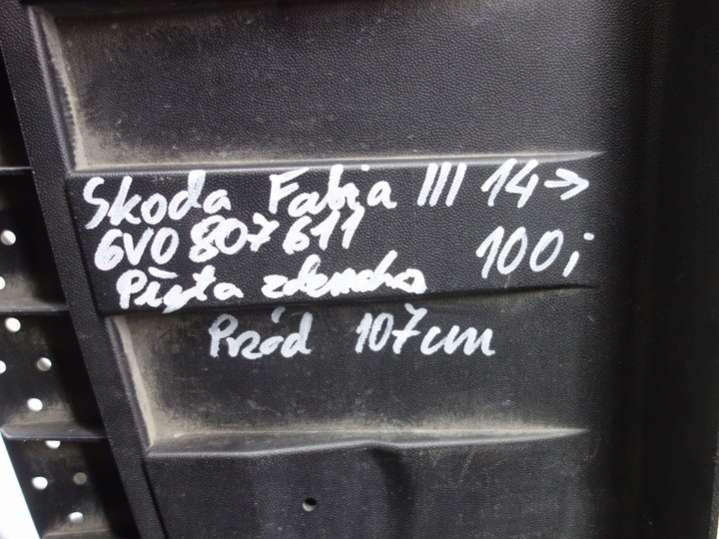 Skoda Fabia III 14→
6V0 807 611 100,-
Płyta
Przód 107cm